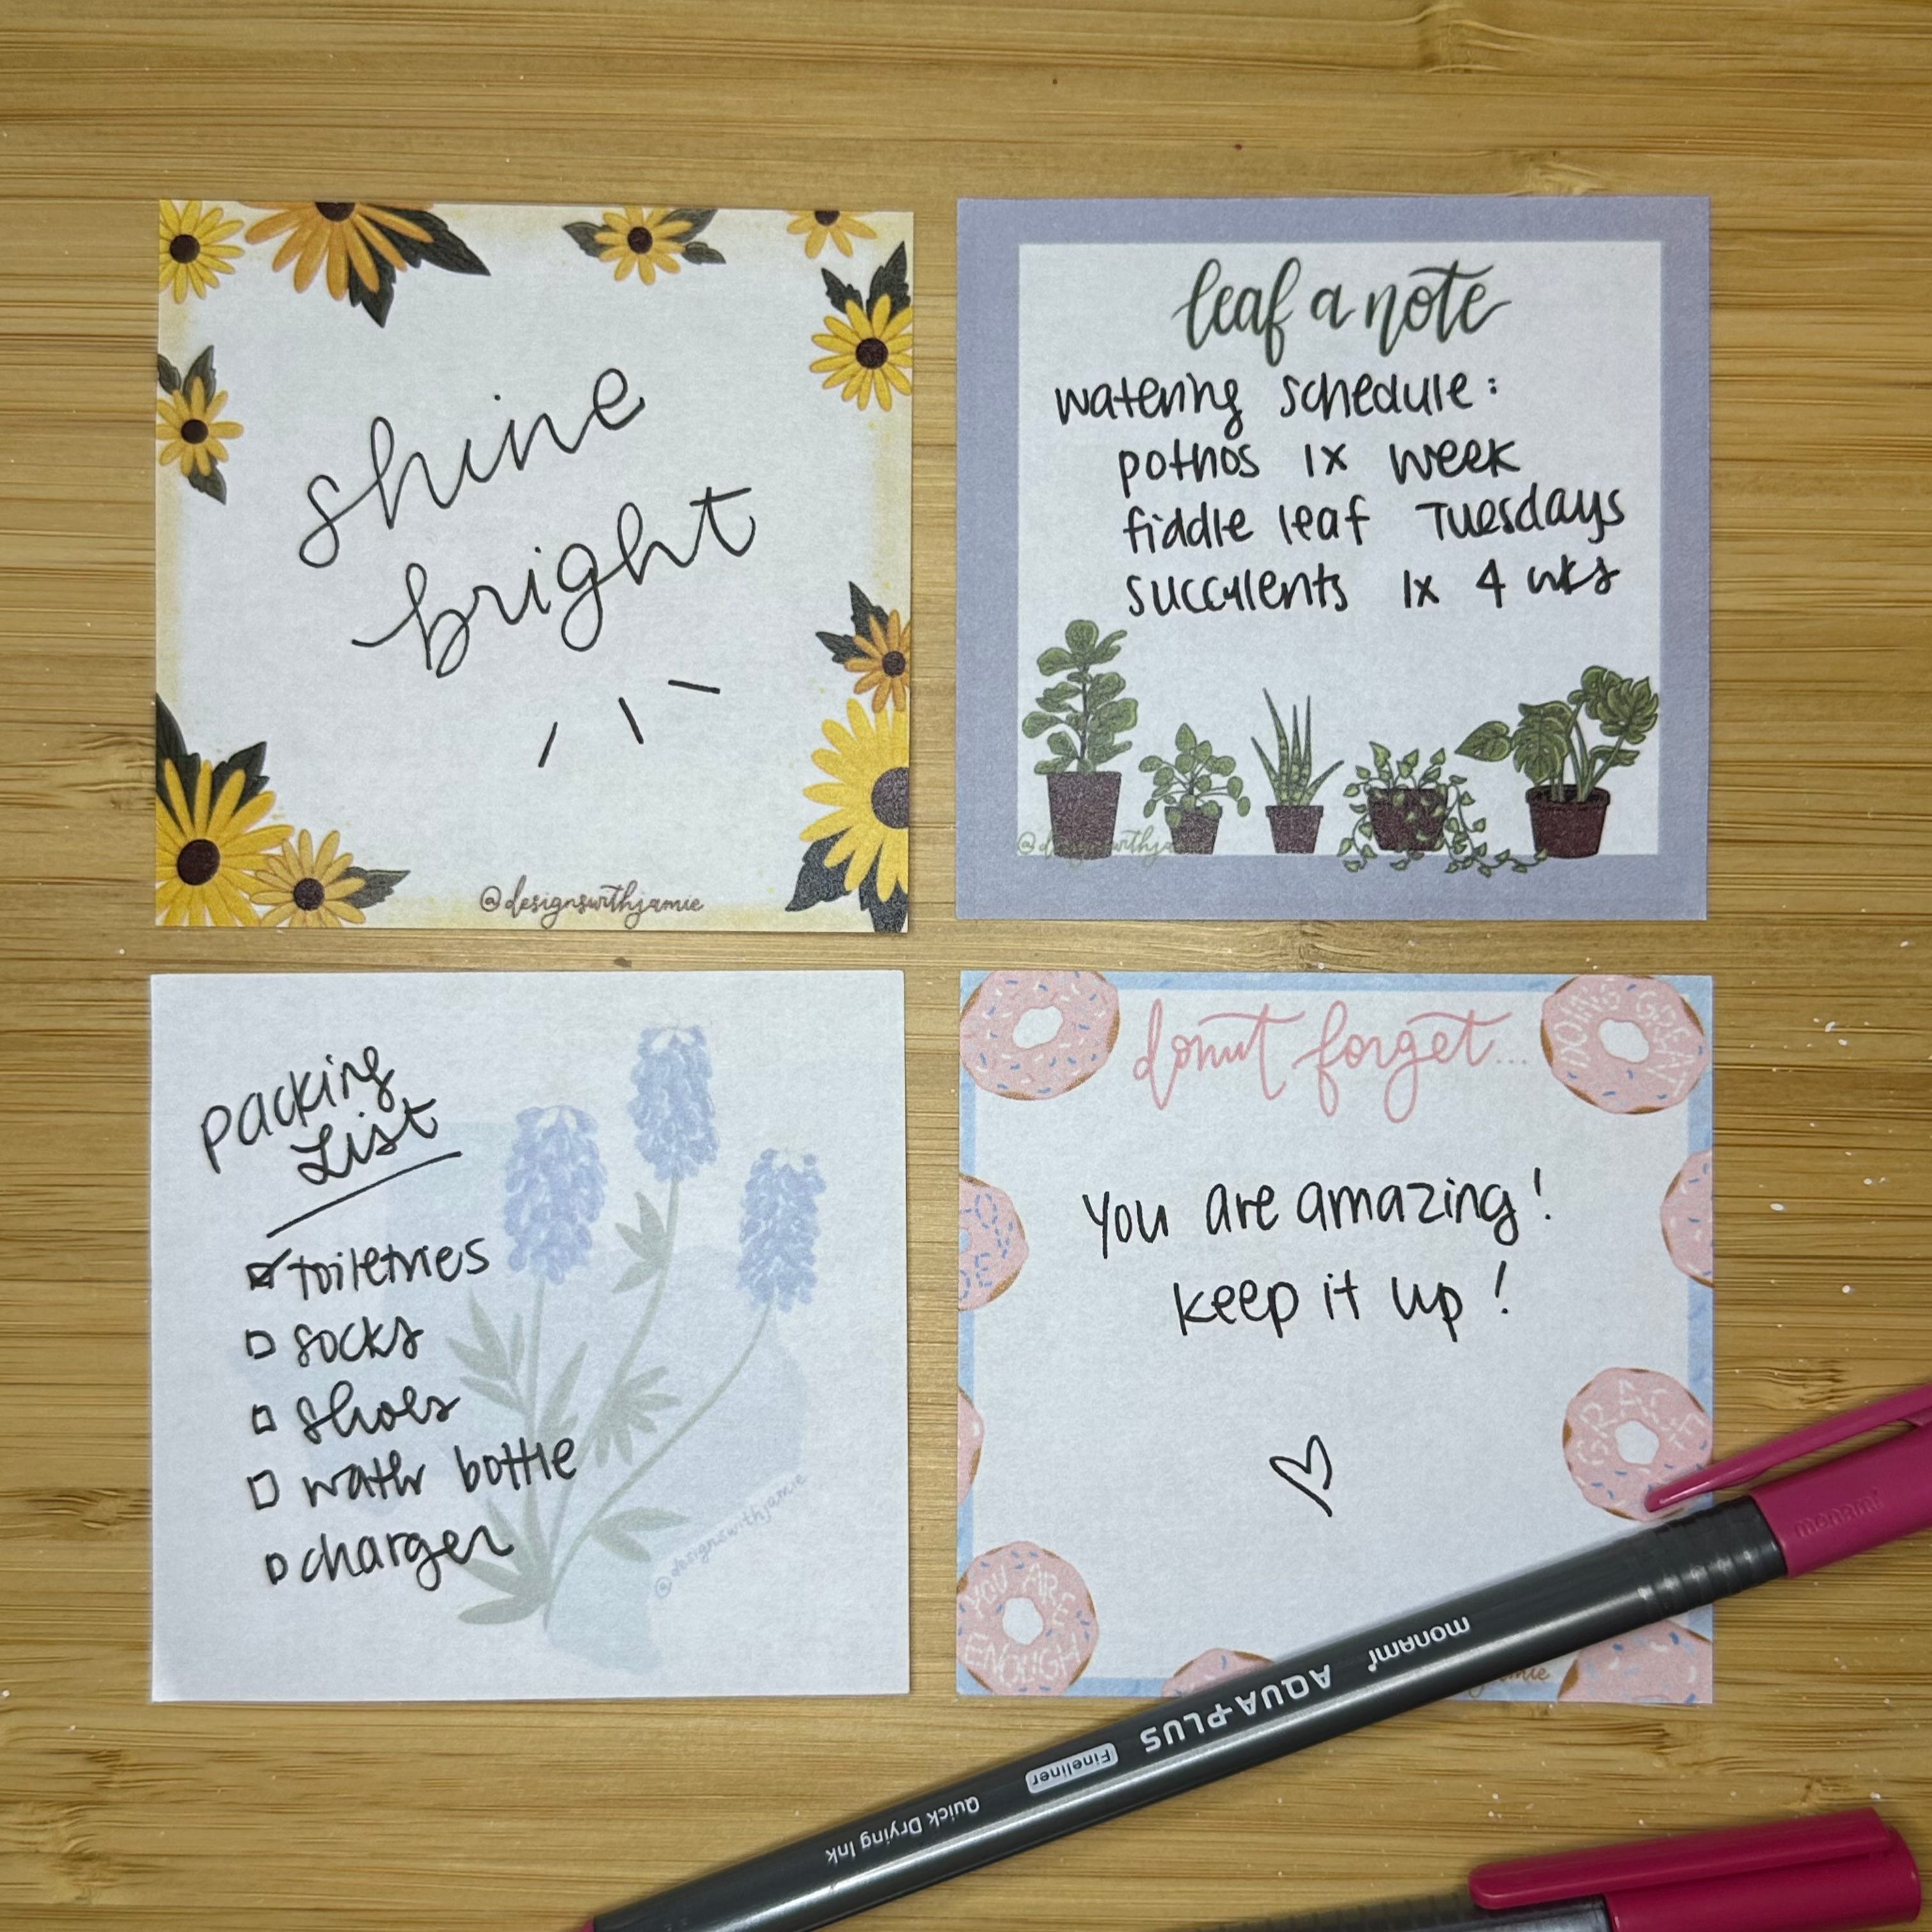 shine
bright
@designswithjamie
leaf a note
watering schedule:
pothos 1x week
fiddle leaf Tuesdays
succulents 1x 4 wks
packing
List
toiletries
socks
shoes
water bottle
charger
@designswithjamie
donut forget...
DOING GREAT
You are amazing!
keep it up!
YOU ARE
ENOUGH
monami
monami
AQUA-PLUS
Fineliner
Quick Drying Ink